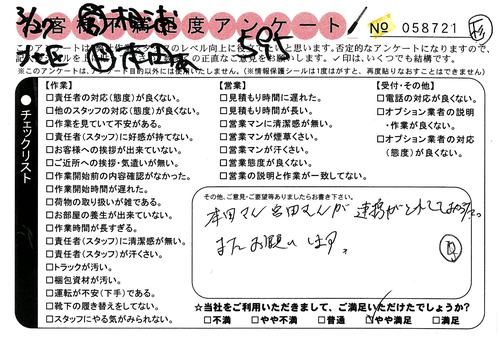 3/27
客様不満足度アンケート
No 058721
595
このアンケートは
レベル向上に役立て
いと思います。否定的なアンケートになりますので、
正直なご意見をお願いします。✓印は、いくつでも結構です。
※このアンケートは、アンケート目的以外には使用いたしません。（※情報保護シールは1度がすと、再度貼りなおすことはできません）
チェックリスト
【作業】
□責任者の対応（態度）が良くない。
□他のスタッフの対応（態度）が良くない。
□作業を見ていて不安がある。
□責任者（スタッフ）に好感が持てない。
□お客様への挨拶が出来ていない。
□ご近所への挨拶・気遣いが無い。
□作業開始前の内容確認がなかった。
□作業開始時間が遅れた。
□荷物の取り扱いが雑である。
□お部屋の養生が出来ていない。
□作業時間が長すぎる。
□責任者（スタッフ）に清潔感が無い。
□責任者（スタッフ）が汗くさい。
□トラックが汚い。
□梱包資材が汚い。
□運転が不安（下手）である。
□靴下の履き替えをしてない。
□スタッフにやる気がみられない。
【営業】
□見積もり時間に遅れた。
□見積もり時間が長い。
□営業マンに清潔感が無い。
□営業マンが煙草くさい。
□営業マンが汗くさい。
□営業態度が良くない。
□営業の説明と作業が一致してない。
【受付・その他】
□電話の対応が良くない。
□オプション業者の説明
・作業が良くない。
□オプション業者の対応
（態度）が良くない。
その他、ご意見・ご要望等ありましたらお書き下さい。
本田さん 宮田さんが 連携が
またお願いします。
☆当社をご利用いただきまして、ご満足いただけたでしょうか？
□不満 □やや不満 □普通 ☑やや満足 □満足